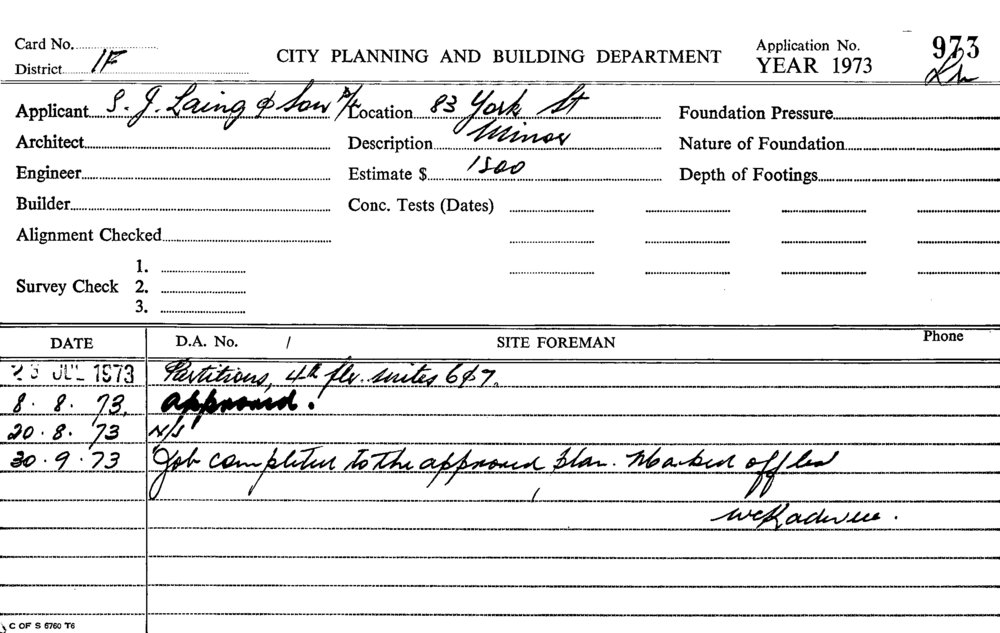 Card No.
District 1F
CITY PLANNING AND BUILDING DEPARTMENT
Application No. 973
YEAR 1973
Applicant S. J. Laing & Son P/L
Location 83 York St
Foundation Pressure
Architect
Description Minor
Nature of Foundation
Engineer
Estimate $ 1500
Depth of Footings
Builder
Conc. Tests (Dates)
Alignment Checked
Survey Check
1.
2.
3.
DATE
D.A. No. /
SITE FOREMAN
Phone
23 JUL 1973 Partitions, 4th flr. suites 6&7.
8.8.73. approved.
20.8.73 N/S
30.9.73 Job completed to the approved plan. Marked off
C OF S 6760 T6